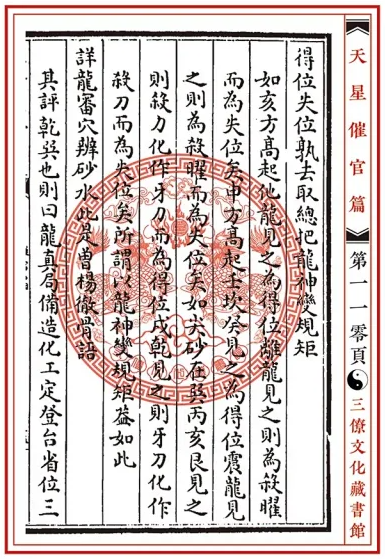 天星催官篇
第一一零頁
三僚文化藏書館
得位失位孰去取總把龍神變規矩
如亥方高起他龍見之為得位離龍見之則為殺曜
而為失位矣申方高起壬坎癸見之為得位震龍見
之則為殺曜而為失位矣如尖砂在巽丙亥艮見之
則殺刀化作牙刀而為得位戌乾見之則牙刀化作
殺刀而為失位矣所謂以龍神變規矩葢如此
詳龍審穴辨砂水此是曾楊徹骨語
其評乾巽也則曰龍真局備造化工定登台省位三